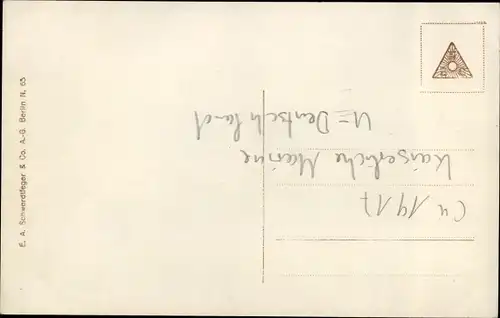 U=Deutschland
Kaiserliche Marine
Cu 1917
E. A. Schwerdtfeger & Co. A.-G. Berlin N. 65